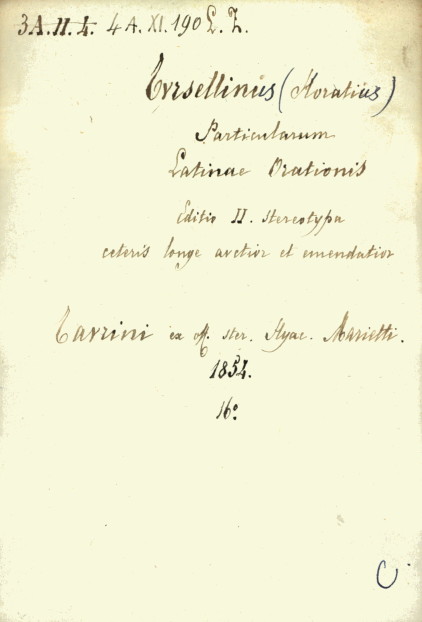 3 A. II. 4. 4 A. XI. 190 L. Z.
Tvrsellinus (Horatius)
Particularum
Latinae Orationis
Editio II. stereotypa
ceteris longe avctior et emendatior
Tavrini ex off. ster. Hyac. Marietti.
1854.
16º
C